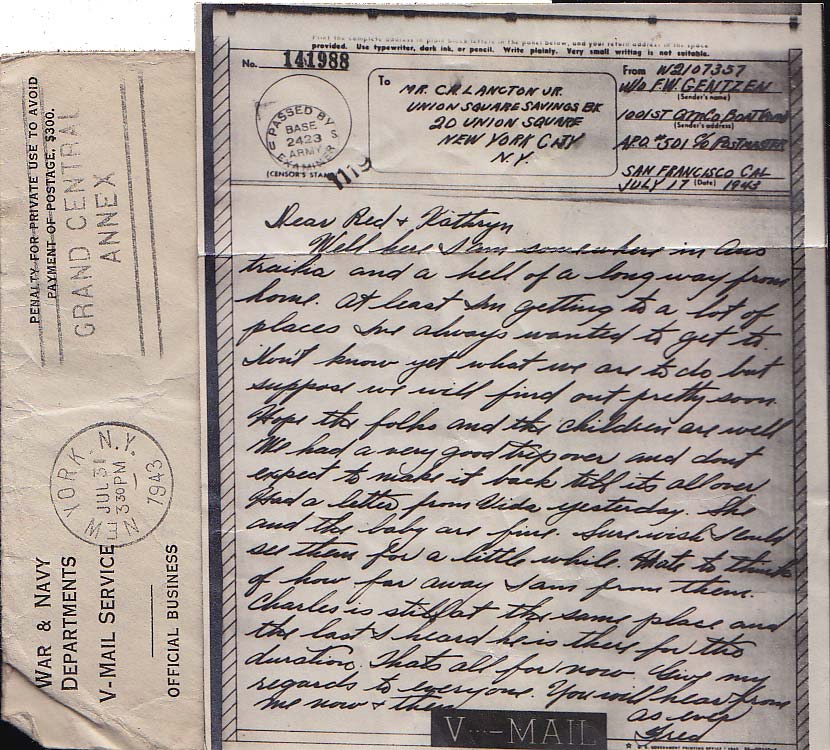 PENALTY FOR PRIVATE USE TO AVOID
PAYMENT OF POSTAGE, $300.
GRAND CENTRAL
ANNEX
YORK, N.Y.
JUL 31
3 30 PM
1943
WAR & NAVY
DEPARTMENTS
V-MAIL SERVICE
OFFICIAL BUSINESS
Print the complete address in plain block letters in the panel below, and your return address in the space
provided. Use typewriter, dark ink, or pencil. Write plainly. Very small writing is not suitable.
No. 141988
PASSED BY
BASE
2423
ARMY
EXAMINER
U S
(CENSOR'S STAMP)
1119
To
MR. C.R. LANGTON JR.
UNION SQUARE SAVINGS BK
20 UNION SQUARE
NEW YORK CITY
N.Y.
From W2107357
W/O F.W. GENTZEN
(Sender's name)
1001ST
(Sender's address)
APO #501 c/o POSTMASTER
SAN FRANCISCO CAL
JULY 17 (Date) 1943
Dear Red + Kathryn
Well here I am somewhere in Aus
tralia and a hell of a long way from
home. At least Im getting to a lot of
places Ive always wanted to get to.
Don't know yet what we are to do but
suppose we will find out pretty soon.
Hope the folks and the children are well
We had a very good trip over and dont
expect to make it back till its all over
Had a letter from Vida yesterday. She
and the baby are fine. Sure wish I could
see them for a little while. Hate to think
of how far away I am from them.
Charles is still at the same place and
the last I heard he is there for the
duration. Thats all for now. Give my
regards to everyone. You will hear from
me now + then
As ever
Fred
V···-MAIL
U.S. GOVERNMENT PRINTING OFFICE